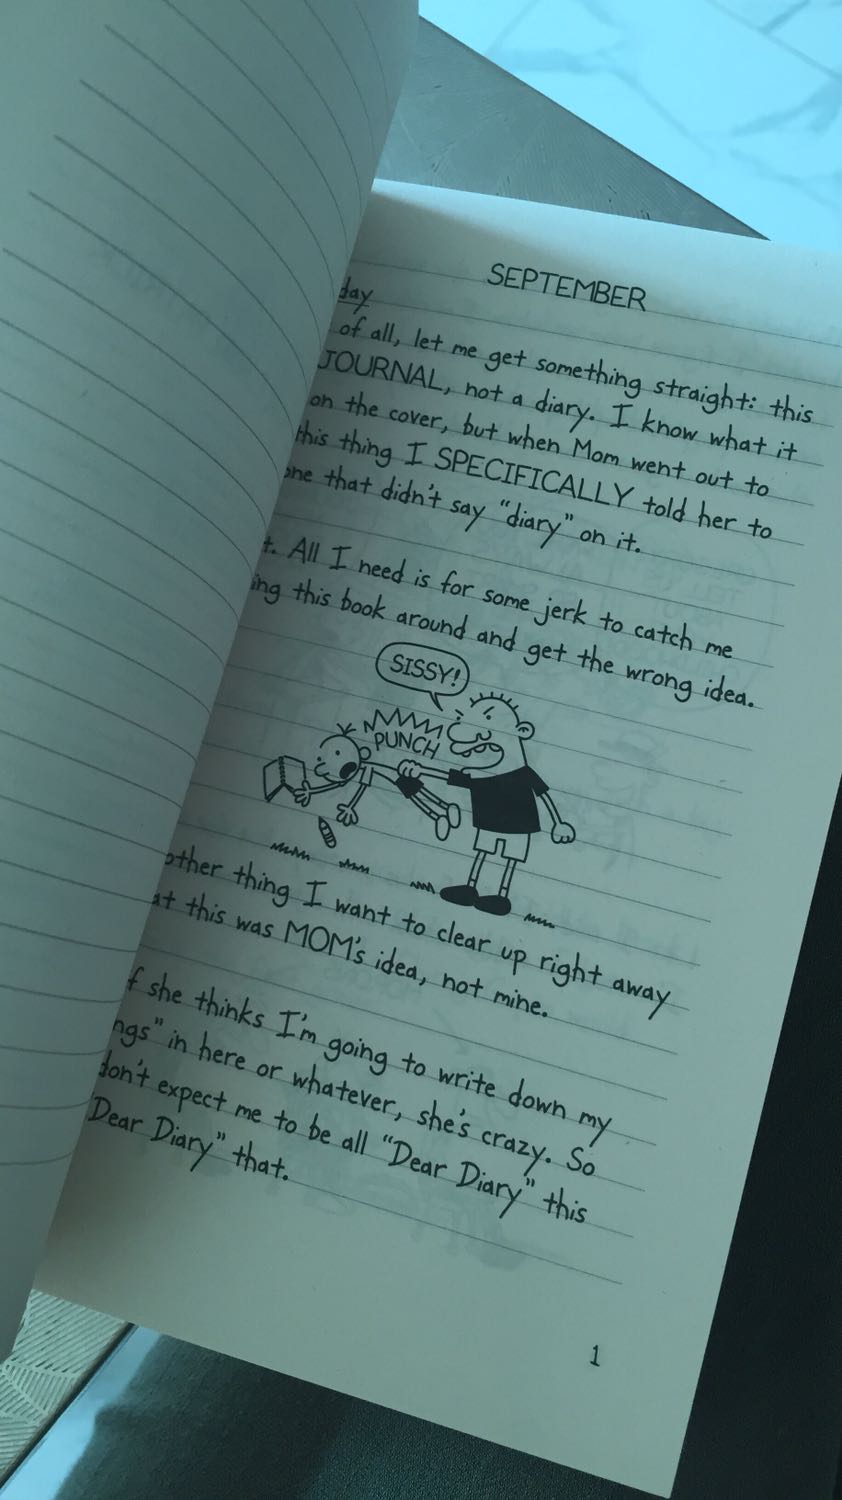 SEPTEMBER
day
of all, let me get something straight: this
JOURNAL, not a diary. I know what it
on the cover, but when Mom went out to
this thing I SPECIFICALLY told her to
one that didn't say "diary" on it.
t. All I need is for some jerk to catch me
ing this book around and get the wrong idea.
SISSY!
PUNCH
other thing I want to clear up right away
at this was MOM's idea, not mine.
f she thinks I'm going to write down my
ngs" in here or whatever, she's crazy. So
don't expect me to be all "Dear Diary" this
Dear Diary" that.
1